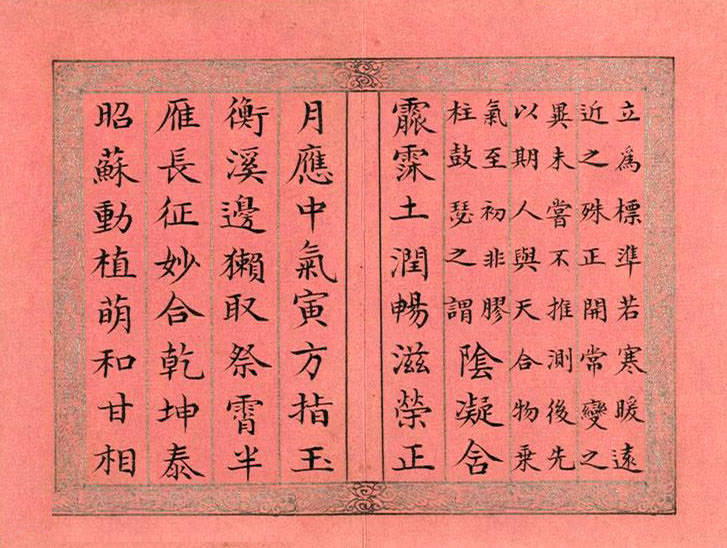 立爲標準若寒暖遠
近之殊正開常變之
異未嘗不推測後先
以期人與天合物乘
氣至初非膠
柱鼓瑟之謂
陰凝舍
霢霂土潤暢滋榮正
月應中氣寅方指玉
衡溪邊獺取祭霄半
雁長征妙合乾坤泰
昭蘇動植萌和甘相